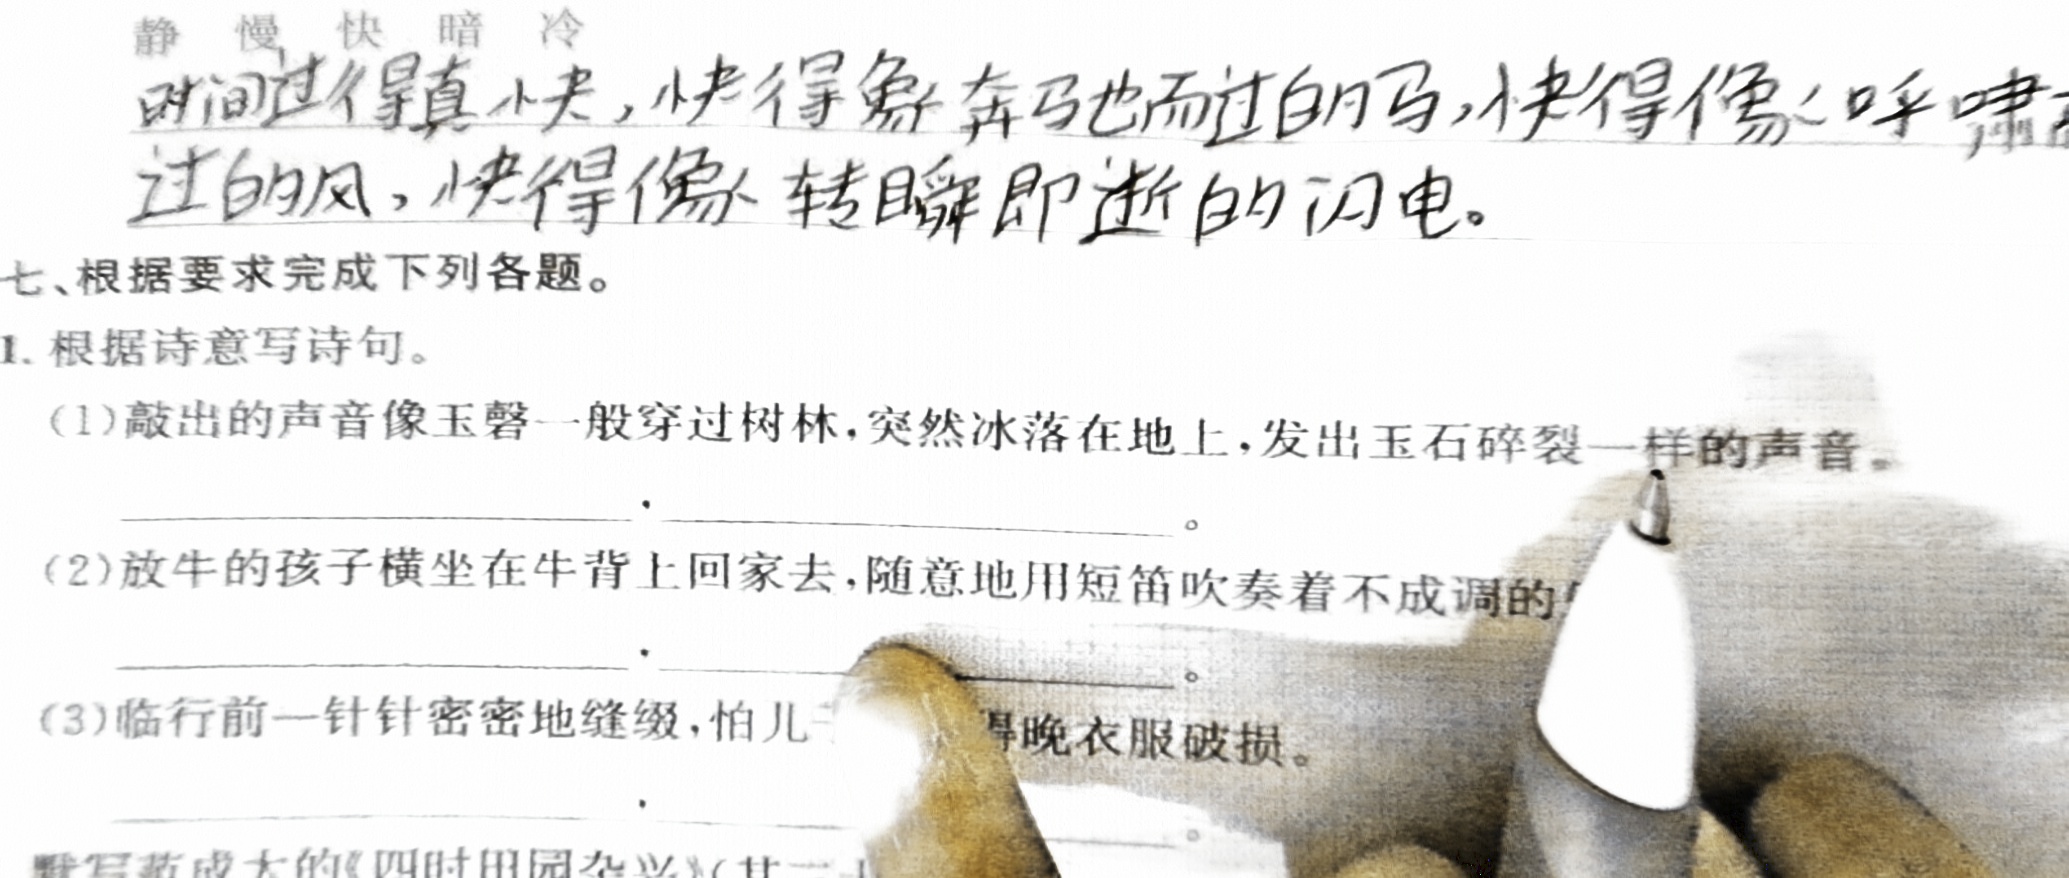 静 慢 快 暗 冷
时间过得真快,快得象奔马也而过的马,快得像呼啸
过的风,快得像转瞬即逝的闪电。
七、根据要求完成下列各题。
1. 根据诗意写诗句。
(1)敲出的声音像玉磬一般穿过树林,突然冰落在地上,发出玉石碎裂一样的声音。
(2)放牛的孩子横坐在牛背上回家去,随意地用短笛吹奏着不成调的
(3)临行前一针针密密地缝缀,怕儿 得晚衣服破损。
默写范成大的《四时田园杂兴》(其二十